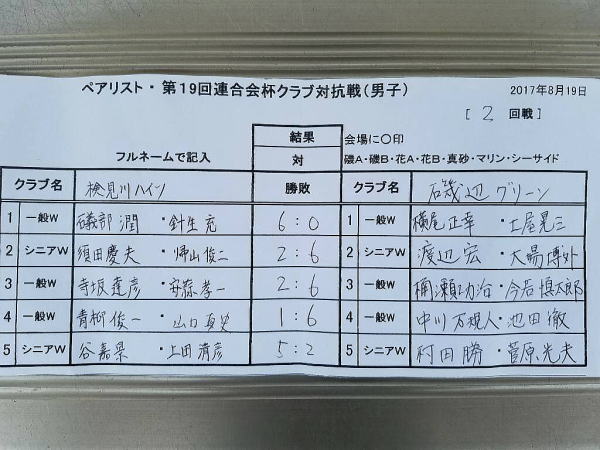 ペアリスト・第19回連合会杯クラブ対抗戦(男子) 2017年8月19日
[ 2 回戦]
結果 会場に○印
フルネームで記入 対 磯A・磯B・花A・花B・真砂・マリン・シーサイド
クラブ名 検見川ハイツ 勝敗 クラブ名 磯辺グリーン
1 一般W 礒部潤・針生充 6:0 1 一般W 横尾正幸・土屋晃三
2 シニアW 須田慶夫・帰山俊二 2:6 2 シニアW 渡辺宏・大場博外
3 一般W 寺坂達彦・安孫孝一 2:6 3 一般W 今居慎太郎
4 一般W 青柳俊一・山口 1:6 4 一般W 中川万規人・池田徹
5 シニアW 谷嘉晃・上田清彦 5:2 5 シニアW 村田勝・菅原光夫